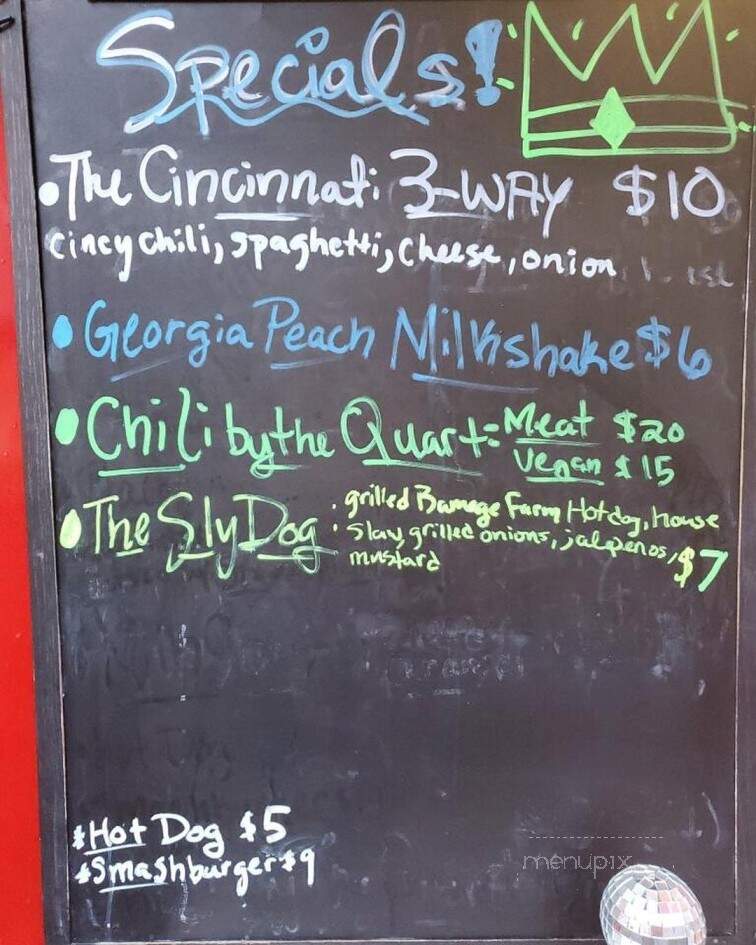 Specials!
• The Cincinnati 3-WAY $10
Cincy chili, spaghetti, cheese, onion
• Georgia Peach Milkshake $6
• Chili by the Quart: Meat $20
Vegan $15
• The Sly Dog : grilled Bamage Farm Hotdog, house
slaw, grilled onions, jalpenos,
mustard $7
*Hot Dog $5
*Smashburger $9
menupix